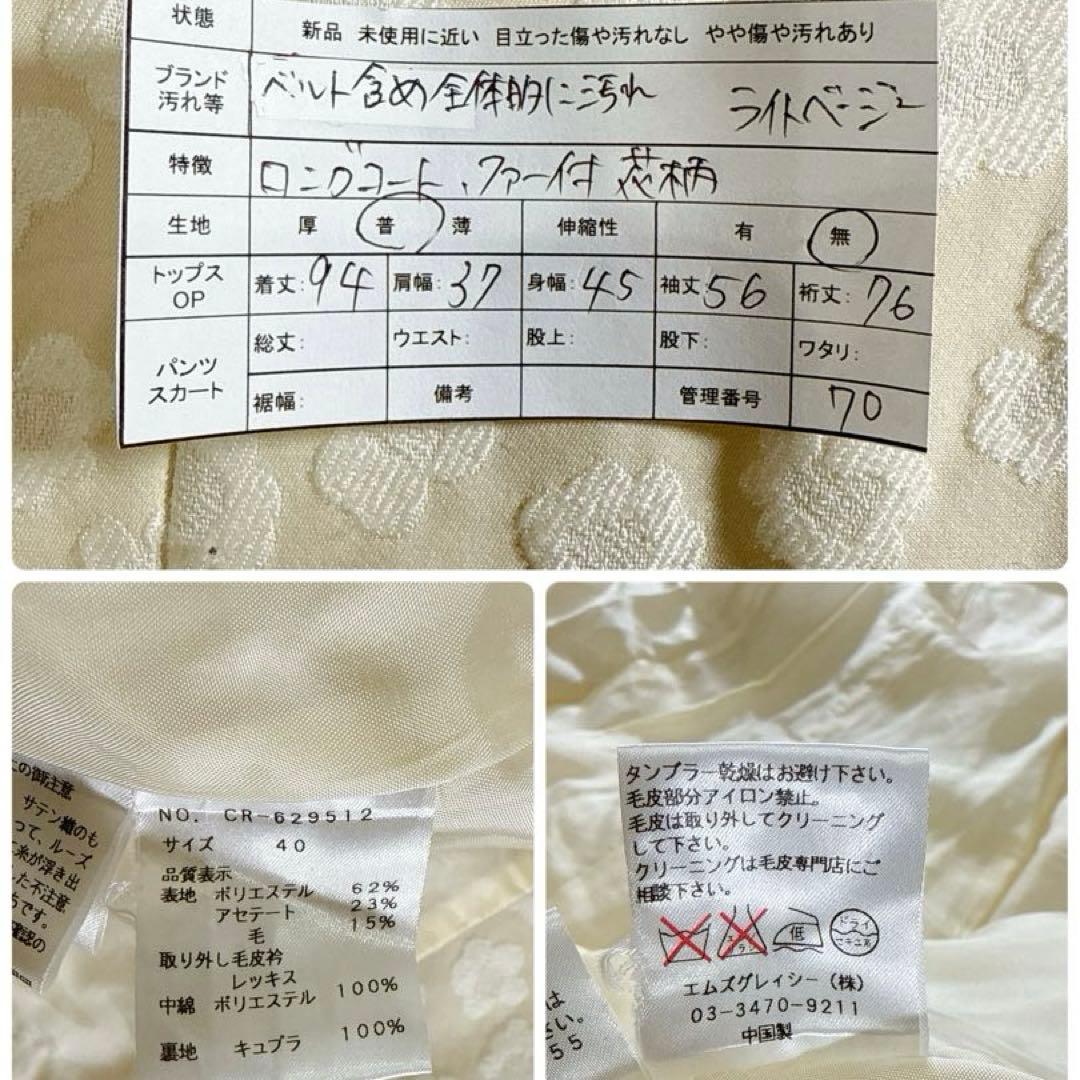 状態 新品 未使用に近い 目立った傷や汚れなし やや傷や汚れあり
ブランド
汚れ等 ベルト含め全体的に汚れ ライトベージュ
特徴 ロングコート、ファー付 花柄
生地 厚 普 薄 伸縮性 有 無
トップス
OP 着丈:94 肩幅:37 身幅:45 袖丈:56 裄丈:76
パンツ
スカート 総丈: ウエスト: 股上: 股下: ワタリ:
裾幅: 備考 管理番号 70
の御注意
サテン織のも
って、ルーズ
糸が浮き出
した不注意
うです。
確認の
NO. CR-629512
サイズ 40
品質表示
表地 ポリエステル 62%
アセテート 23%
毛 15%
取り外し毛皮衿
レッキス
中綿 ポリエステル 100%
裏地 キュプラ 100%
タンブラー乾燥はお避け下さい。
毛皮部分アイロン禁止。
毛皮は取り外してクリーニング
して下さい。
クリーニングは毛皮専門店にご
相談下さい。
低 ドライ
セキユ系
エムズグレイシー(株)
03-3470-9211
中国製
は
さい。
55